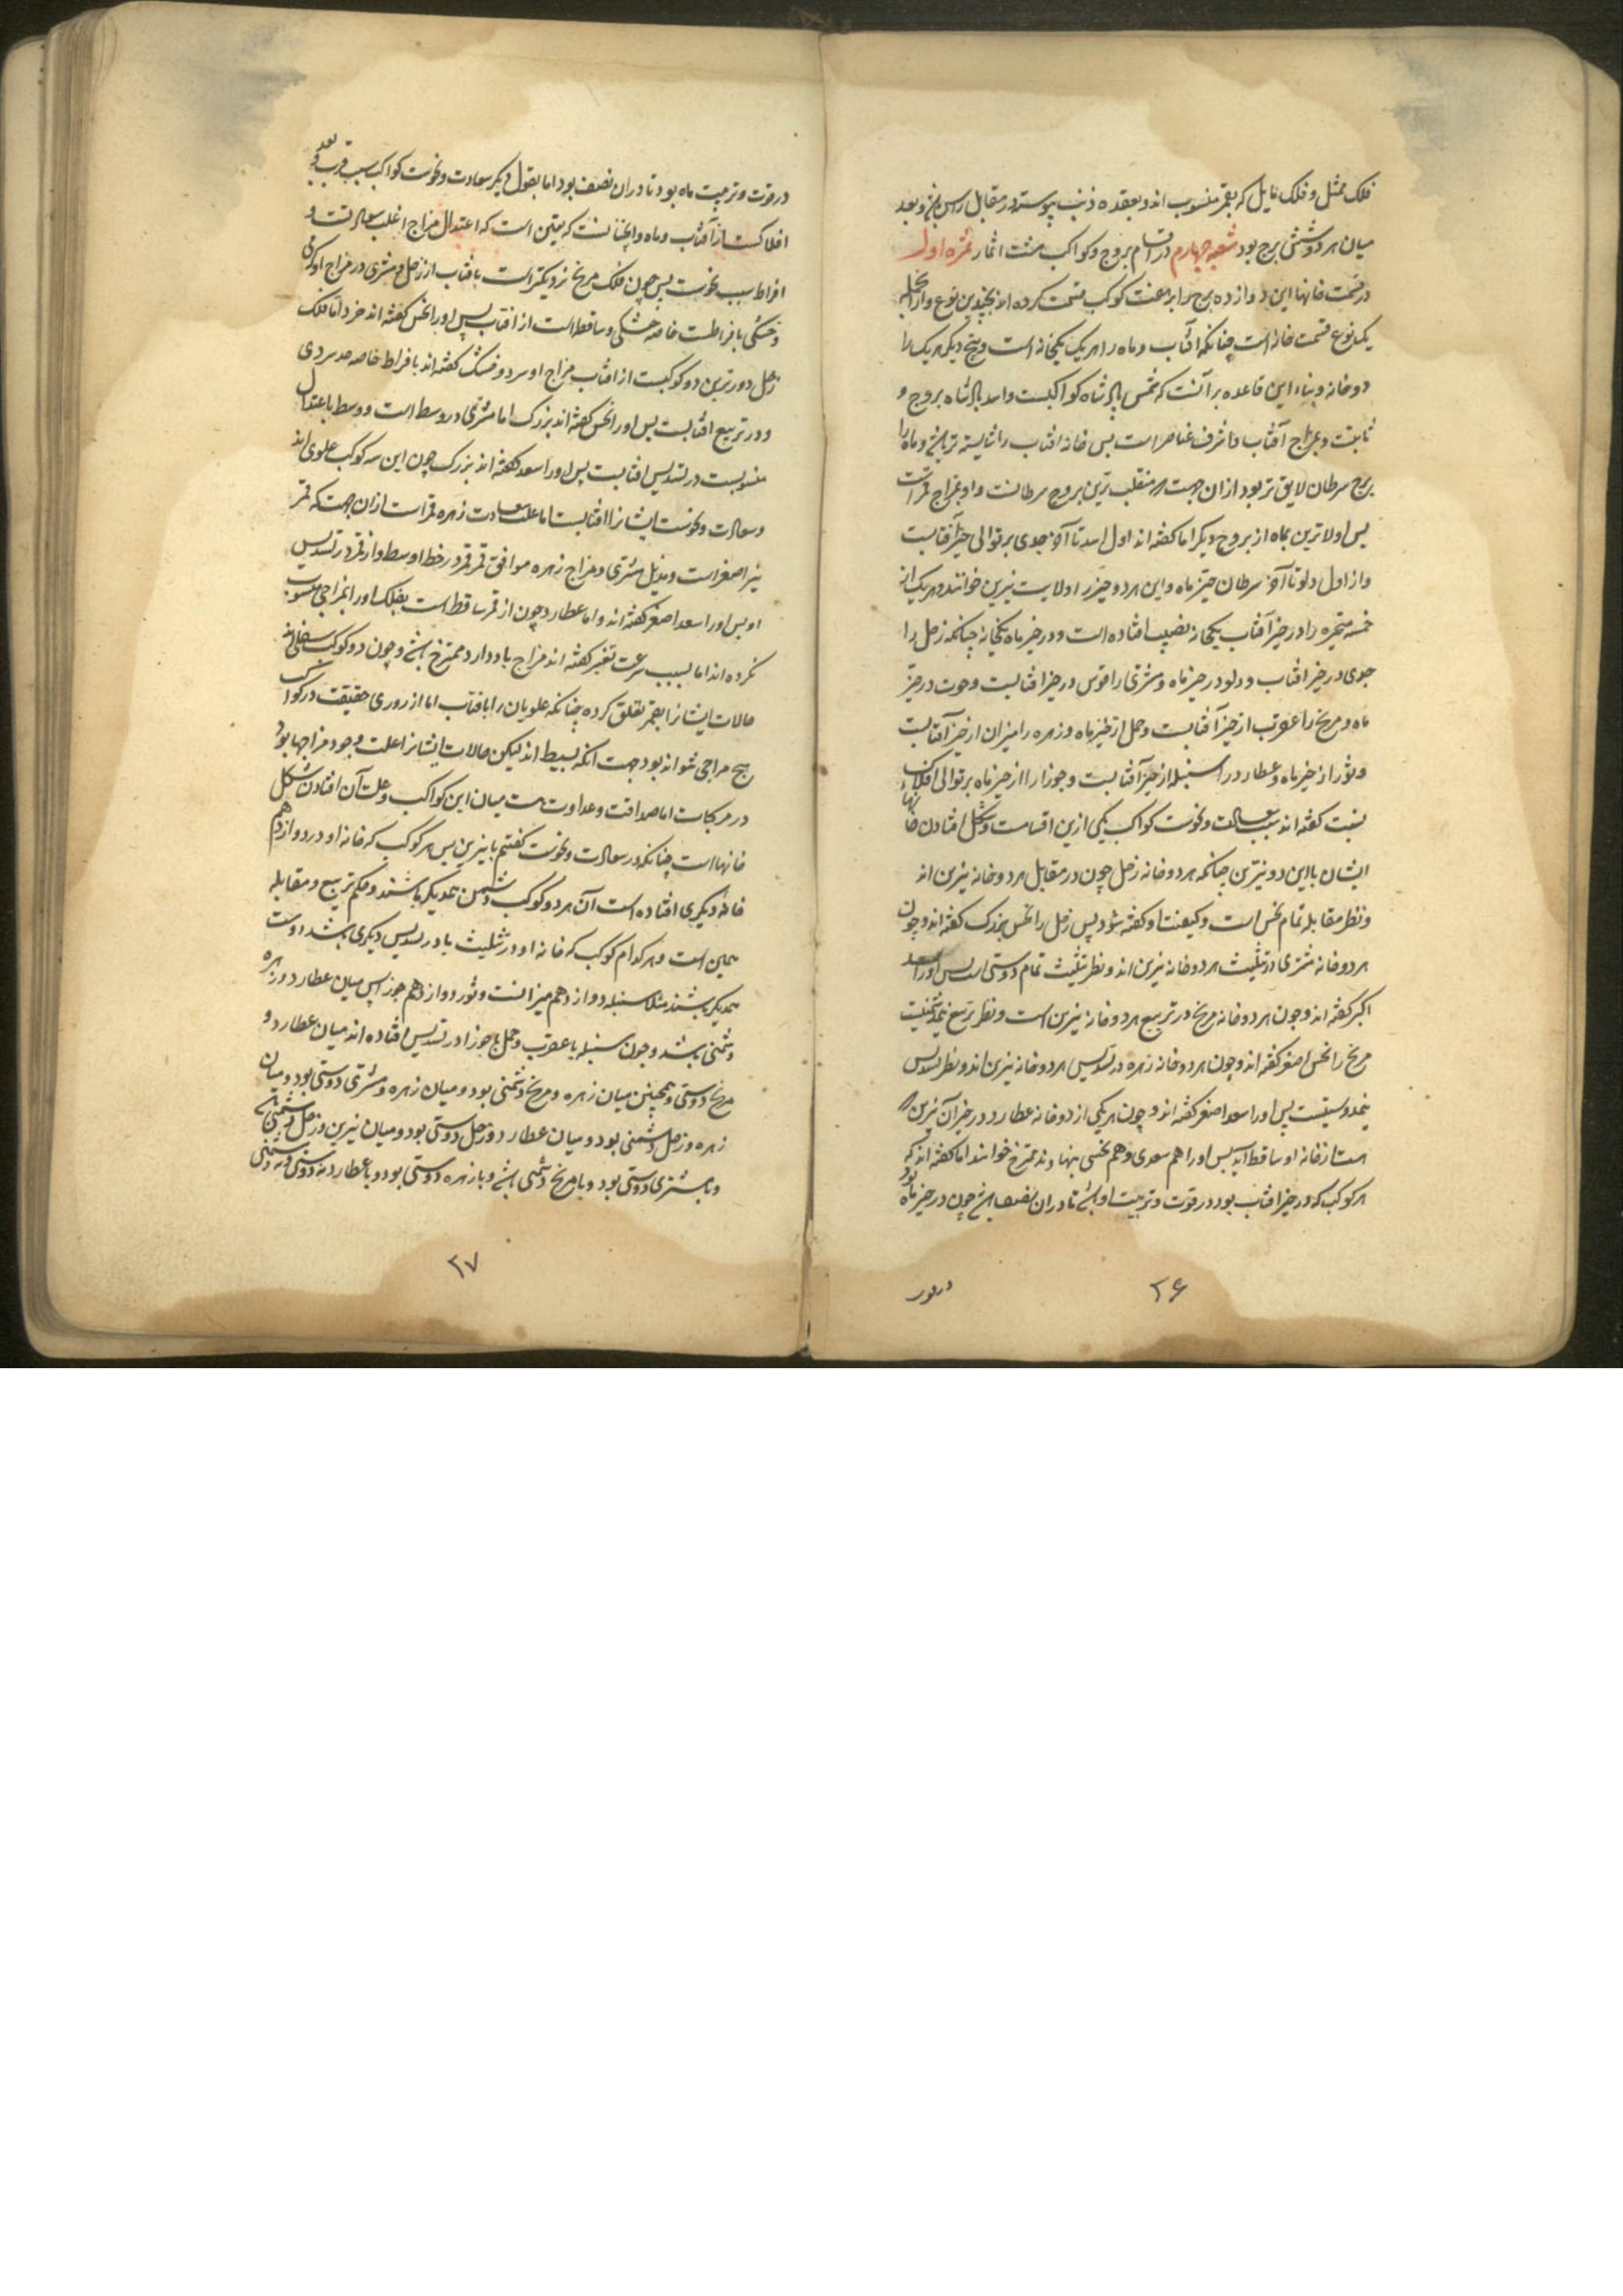 فلک ممثل و فلک مایل که بقمر منسوب اند و بعقده ذنب پیوسته در مقابل راس و بعد
میان هر دو شش برج بود شعبه چهارم در اقسام بروج و کواکب مشت اثمار ثمره اول
در قسمت خانها این دوازده برج برابر هفت کوکب قسمت کرده اند بچندین نوع و از انجمله
یک نوع قسمت خانه است چنانکه آفتاب و ماه را هر یک یکخانه است و پنج دیگر هر یک را
دو خانه و بناء این قاعده بر آنست که شمس پادشاه کواکبست و اسد پادشاه بروج و
ثابتست و بمزاج آفتاب و اشرف عناصر است پس خانه افتاب را شایسته تر باشد و ماه را
برج سرطان لایق تر بود از ان جهت که منقلب ترین بروج سرطانست و او بمزاج قمر است
پس اولاترین بماه از بروج دیگر اما گفته اند اول اسد تا آخر جدی بر توالی حیز آفتابست
و از اول دلو تا آخر سرطان حیز ماه و این هر دو حیز را ولایت نیرین خوانند و هر یک از
خمسه متحیره را در حیز آفتاب یکخانه نصیب افتاده است و در حیز ماه یکخانه چنانکه زحل را
جدی در حیز افتاب و دلو در حیز ماه و مشتری را قوس در حیز افتابست و حوت در حیز
ماه و مریخ را عقرب از حیز آفتابست و حمل از حیز ماه و زهره را میزان از حیز آفتابست
و ثور از حیز ماه و عطارد را سنبله از حیز آفتابست و جوزا را از حیز ماه بر توالی افلاک
نسبت گفته اند سبب سعادت و نحوست کواکب یکی ازین اقسامست و شکل افتادن خانها
ایشان با این دو نیرین چنانکه هر دو خانه زحل چون در مقابل هر دو خانه نیرین اند
و نظر مقابله تمام نحس است و کیفیت او گفته شود پس زحل را نحس بزرگ گفته اند و چون
هر دو خانه مشتری در تثلیث هر دو خانه نیرین اند و نظر تثلیث تمام دوستی است پس او را سعد
اکبر گفته اند و چون هر دو خانه مریخ در تربیع هر دو خانه نیرین است و نظر تربیع نیم دشمنیست
مریخ را نحس اصغر گفته اند و چون هر دو خانه زهره در تسدیس هر دو خانه نیرین اند و نظر تسدیس
نیم دوستیست پس او را سعد اصغر گفته اند و چون هر یکی از دو خانه عطارد در حیز آن نیرین که
است از خانه او ساقط آید پس او را هم سعدی و هم نحسی نهادند و ممتزج خوانند اما گفته اند که
هر کوکب که در حیز افتاب بود در قوت و تربیت او باشد تا دران نصف باشد چون در حیز ماه بود
در قوت
۲۶
در قوت و تربیت ماه بود تا دران نصف بود اما بقول دیگر سعادت و نحوست کواکب بسبب قرب و بعد
افلاکست از آفتاب و ماه و این چنانست که یقین است که اعتدال مزاج اغلب سعادتست و
افراط سبب نحوست پس چون فلک مریخ نزدیکتر است بافتاب از زحل و مشتری در مزاج او گرمی
و خشکی بافراطست خاصه خشکی و ساقط است از افتاب پس او را نحس گفته اند خرد اما فلک
زحل دورترین دو کوکبیست از افتاب مزاج او سرد و خشک گفته اند بافراط خاصه سردی
و در تربیع افتابست پس او را نحس گفته اند بزرگ اما مشتری در وسط است و وسط باعتدال
منسوبست در تسدیس افتابست پس او را سعد گفته اند بزرگ چون این سه کوکب علوی اند
و سعادت و نحوست ایشانرا افتابست اما علت سعادت زهره قمر است ازان جهت که قمر
نیر اصغر است و بدیل مشتری و مزاج زهره موافق قمر قمر در خط اوسط و از قمر در تسدیس
او پس او را سعد اصغر گفته اند و اما عطارد چون از قمر ساقط است بفلک او را بمزاجی منسوب
نکرده اند اما بسبب سرعت تغیر گفته اند مزاج باد دارد ممتزج باشد و چون دو کوکب سفلی اند
حالات ایشانرا بقمر تعلق کرده چنانکه علویان را بافتاب اما از روی حقیقت در کواکب
هیچ مزاجی نتواند بود جهت آنکه بسیط اند لیکن حالات ایشانرا علت وجود مزاجها بود
در مرکبات اما صداقت و عداوت هست میان این کواکب و علت آن افتادن شکل
خانها است چنانکه در سعادت و نحوست گفتیم با نیرین پس هر کوکب که خانه او در دوازدهم
خانه دیگری افتاده است آن هر دو کوکب دشمن همدیگر باشند و حکم تربیع و مقابله
همین است و هر کدام کوکب که خانه او در تثلیث یا در تسدیس دیگری باشد دوست
همدیگر باشند مثلا سنبله دوازدهم میزانست و ثور دوازدهم جوزا پس میان عطارد و زهره
دشمنی باشد و چون سنبله با عقرب و حمل با جوزا در تسدیس افتاده اند میان عطارد و
مریخ دوستی و همچنین میان زهره و مریخ دشمنی بود و میان زهره و مشتری دوستی بود و میان
زهره و زحل دشمنی بود و میان عطارد و زحل دوستی بود و میان نیرین و زحل دشمنی باشد
و با مشتری دوستی بود و با مریخ دشمنی باشد و با زهره دوستی بود و با عطارد نه دوستی و نه دشمنی
۲۷